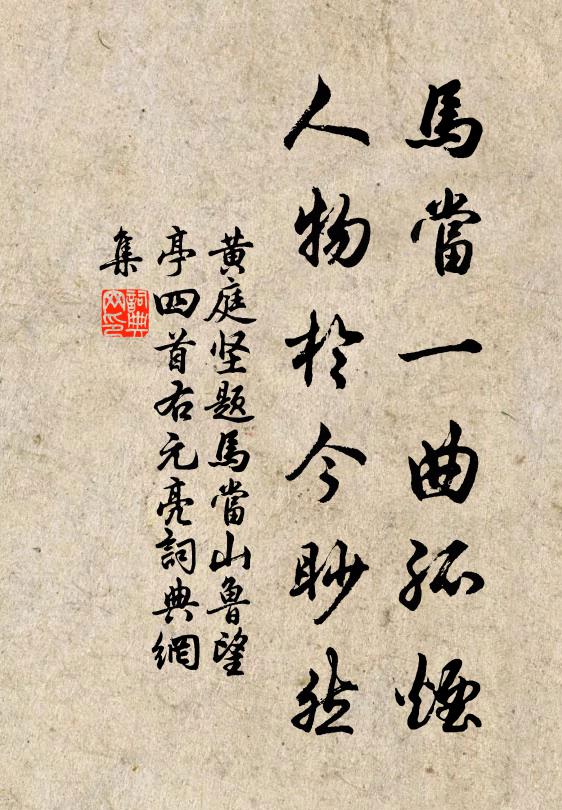 馬當一曲孤煙
人物於今眇然
黄庭坚题馬當山魯望
亭四首右元亮詞典網
集
詞典網印